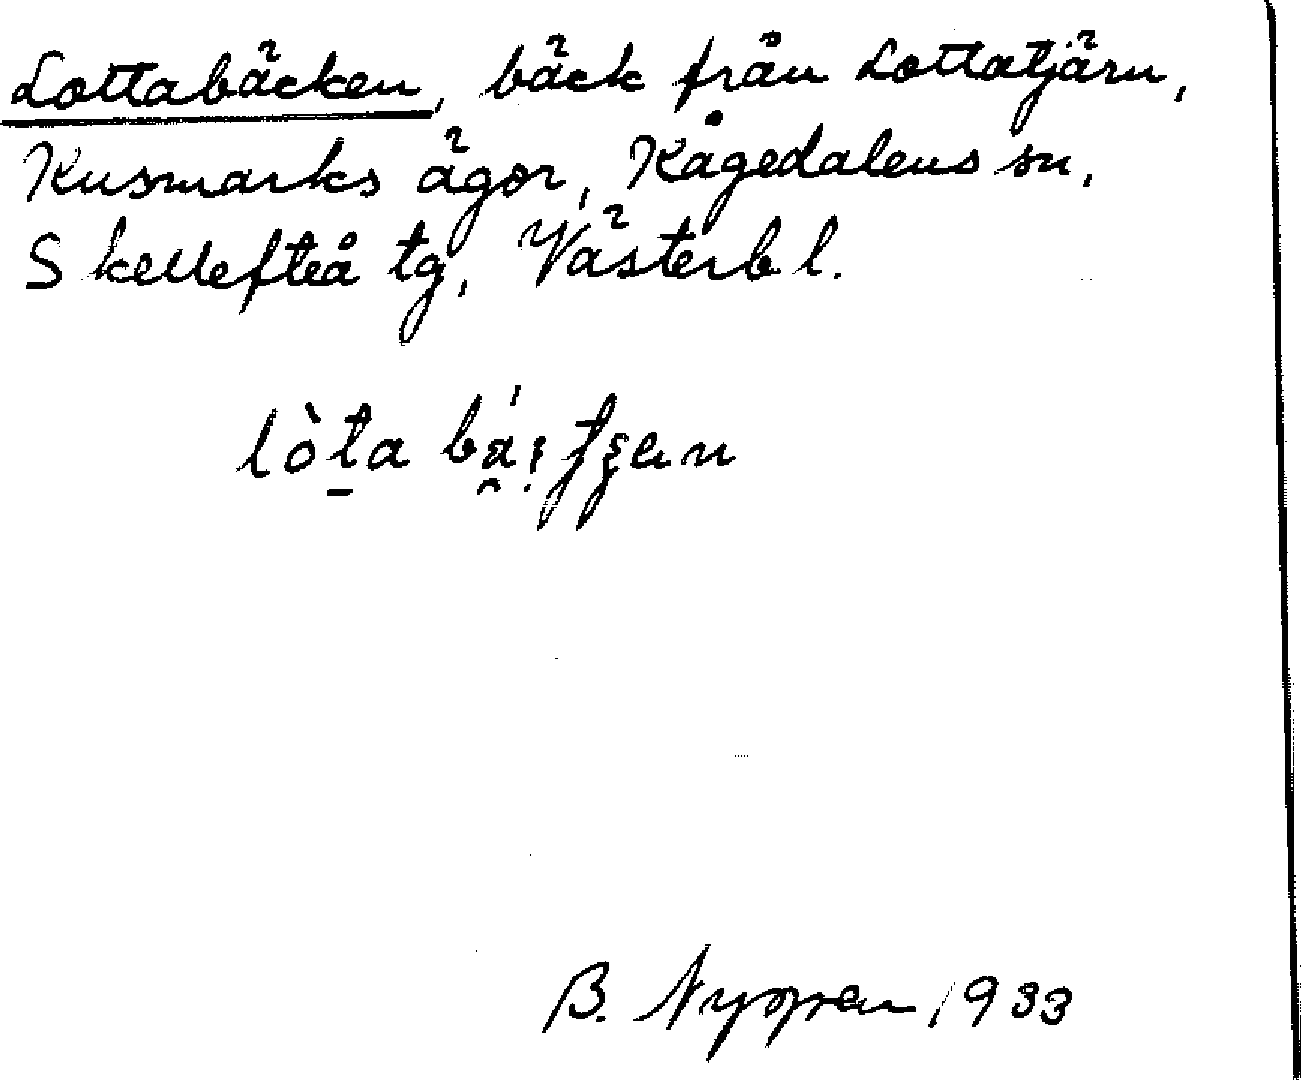 Lottabäcken, bäck från Lottatjärn,
Kusmarks ägor, Kågedalens sn,
Skellefteå tg, Västerb l.
B. Nyman 1933